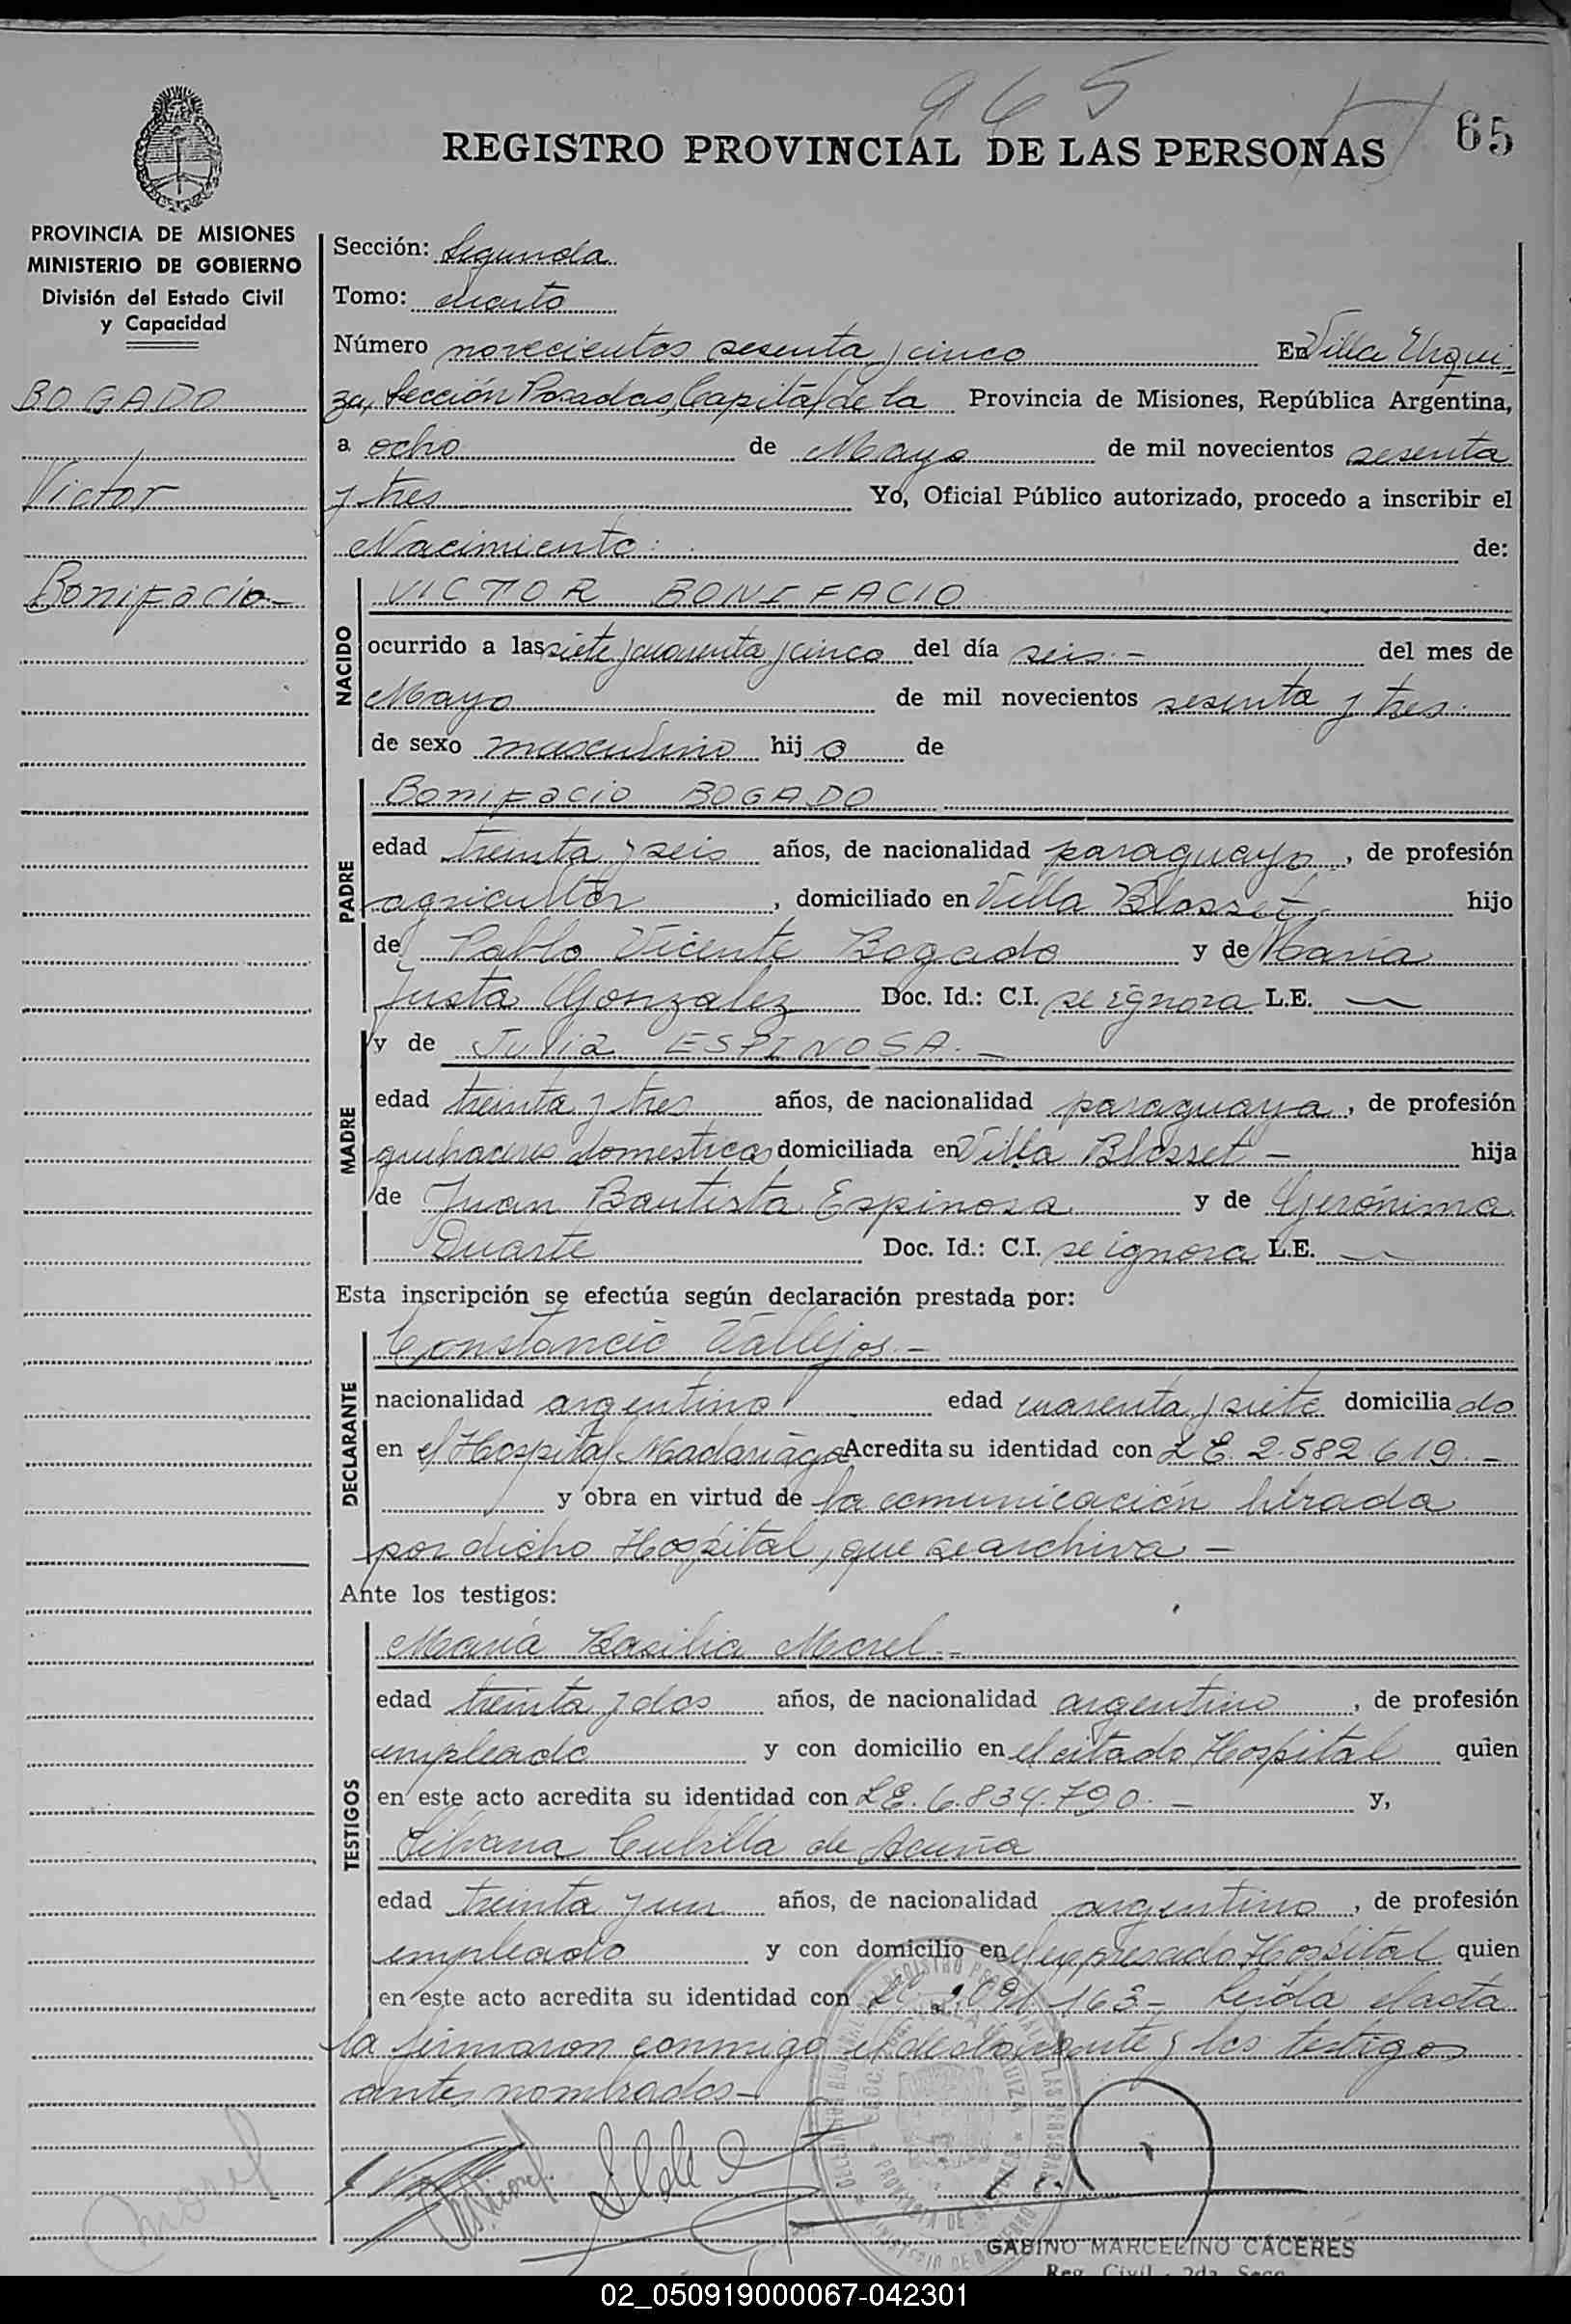 965
65
REGISTRO PROVINCIAL DE LAS PERSONAS
PROVINCIA DE MISIONES
MINISTERIO DE GOBIERNO
División del Estado Civil
y Capacidad
BOGADO
Victor
Bonifacio -
Sección: Segunda
Tomo: cuarto
Número novecientos sesenta y cinco En Villa Urqui
za, Sección Posadas, Capital de la Provincia de Misiones, República Argentina,
a ocho de Mayo de mil novecientos sesenta
y tres Yo, Oficial Público autorizado, procedo a inscribir el
Nacimiento: de:
NACIDO
VICTOR BONIFACIO
ocurrido a las siete y cuarenta y cinco del día seis. - del mes de
Mayo de mil novecientos sesenta y tres.
de sexo masculino hijo de
PADRE
Bonifacio BOGADO
edad treinta y seis años, de nacionalidad paraguayo, de profesión
agricultor, domiciliado en Villa Blosset hijo
de Pablo Vicente Bogado y de María
Justa Gonzalez Doc. Id.: C.I. se ignora L.E. —
MADRE
y de Julia ESPINOSA. -
edad treinta y tres años, de nacionalidad paraguaya, de profesión
quehaceres domesticos domiciliada en Villa Blosset - hija
de Juan Bautista Espinosa y de Gerónima
Duarte Doc. Id.: C.I. se ignora L.E. —
Esta inscripción se efectúa según declaración prestada por:
DECLARANTE
Constancio Vallejos. -
nacionalidad argentino edad cuarenta y siete domiciliado
en el Hospital Madariaga Acredita su identidad con L E 2.582.619. -
y obra en virtud de la comunicación librada
por dicho Hospital, que se archiva -
Ante los testigos:
TESTIGOS
María Basilia Morel. -
edad treinta y dos años, de nacionalidad argentino, de profesión
empleado y con domicilio en el citado Hospital quien
en este acto acredita su identidad con L E. 6.834.790. - y,
Silvana Cubilla de Acuña
edad treinta y un años, de nacionalidad argentino, de profesión
empleado y con domicilio en el expresado Hospital quien
en este acto acredita su identidad con 163 - Leída el acta
la firmaron conmigo el declarante y los testigos
antes nombrados -
Morel
GABINO MARCELINO CACERES
Reg. Civil - 2da. Secc.
02_050919000067-042301